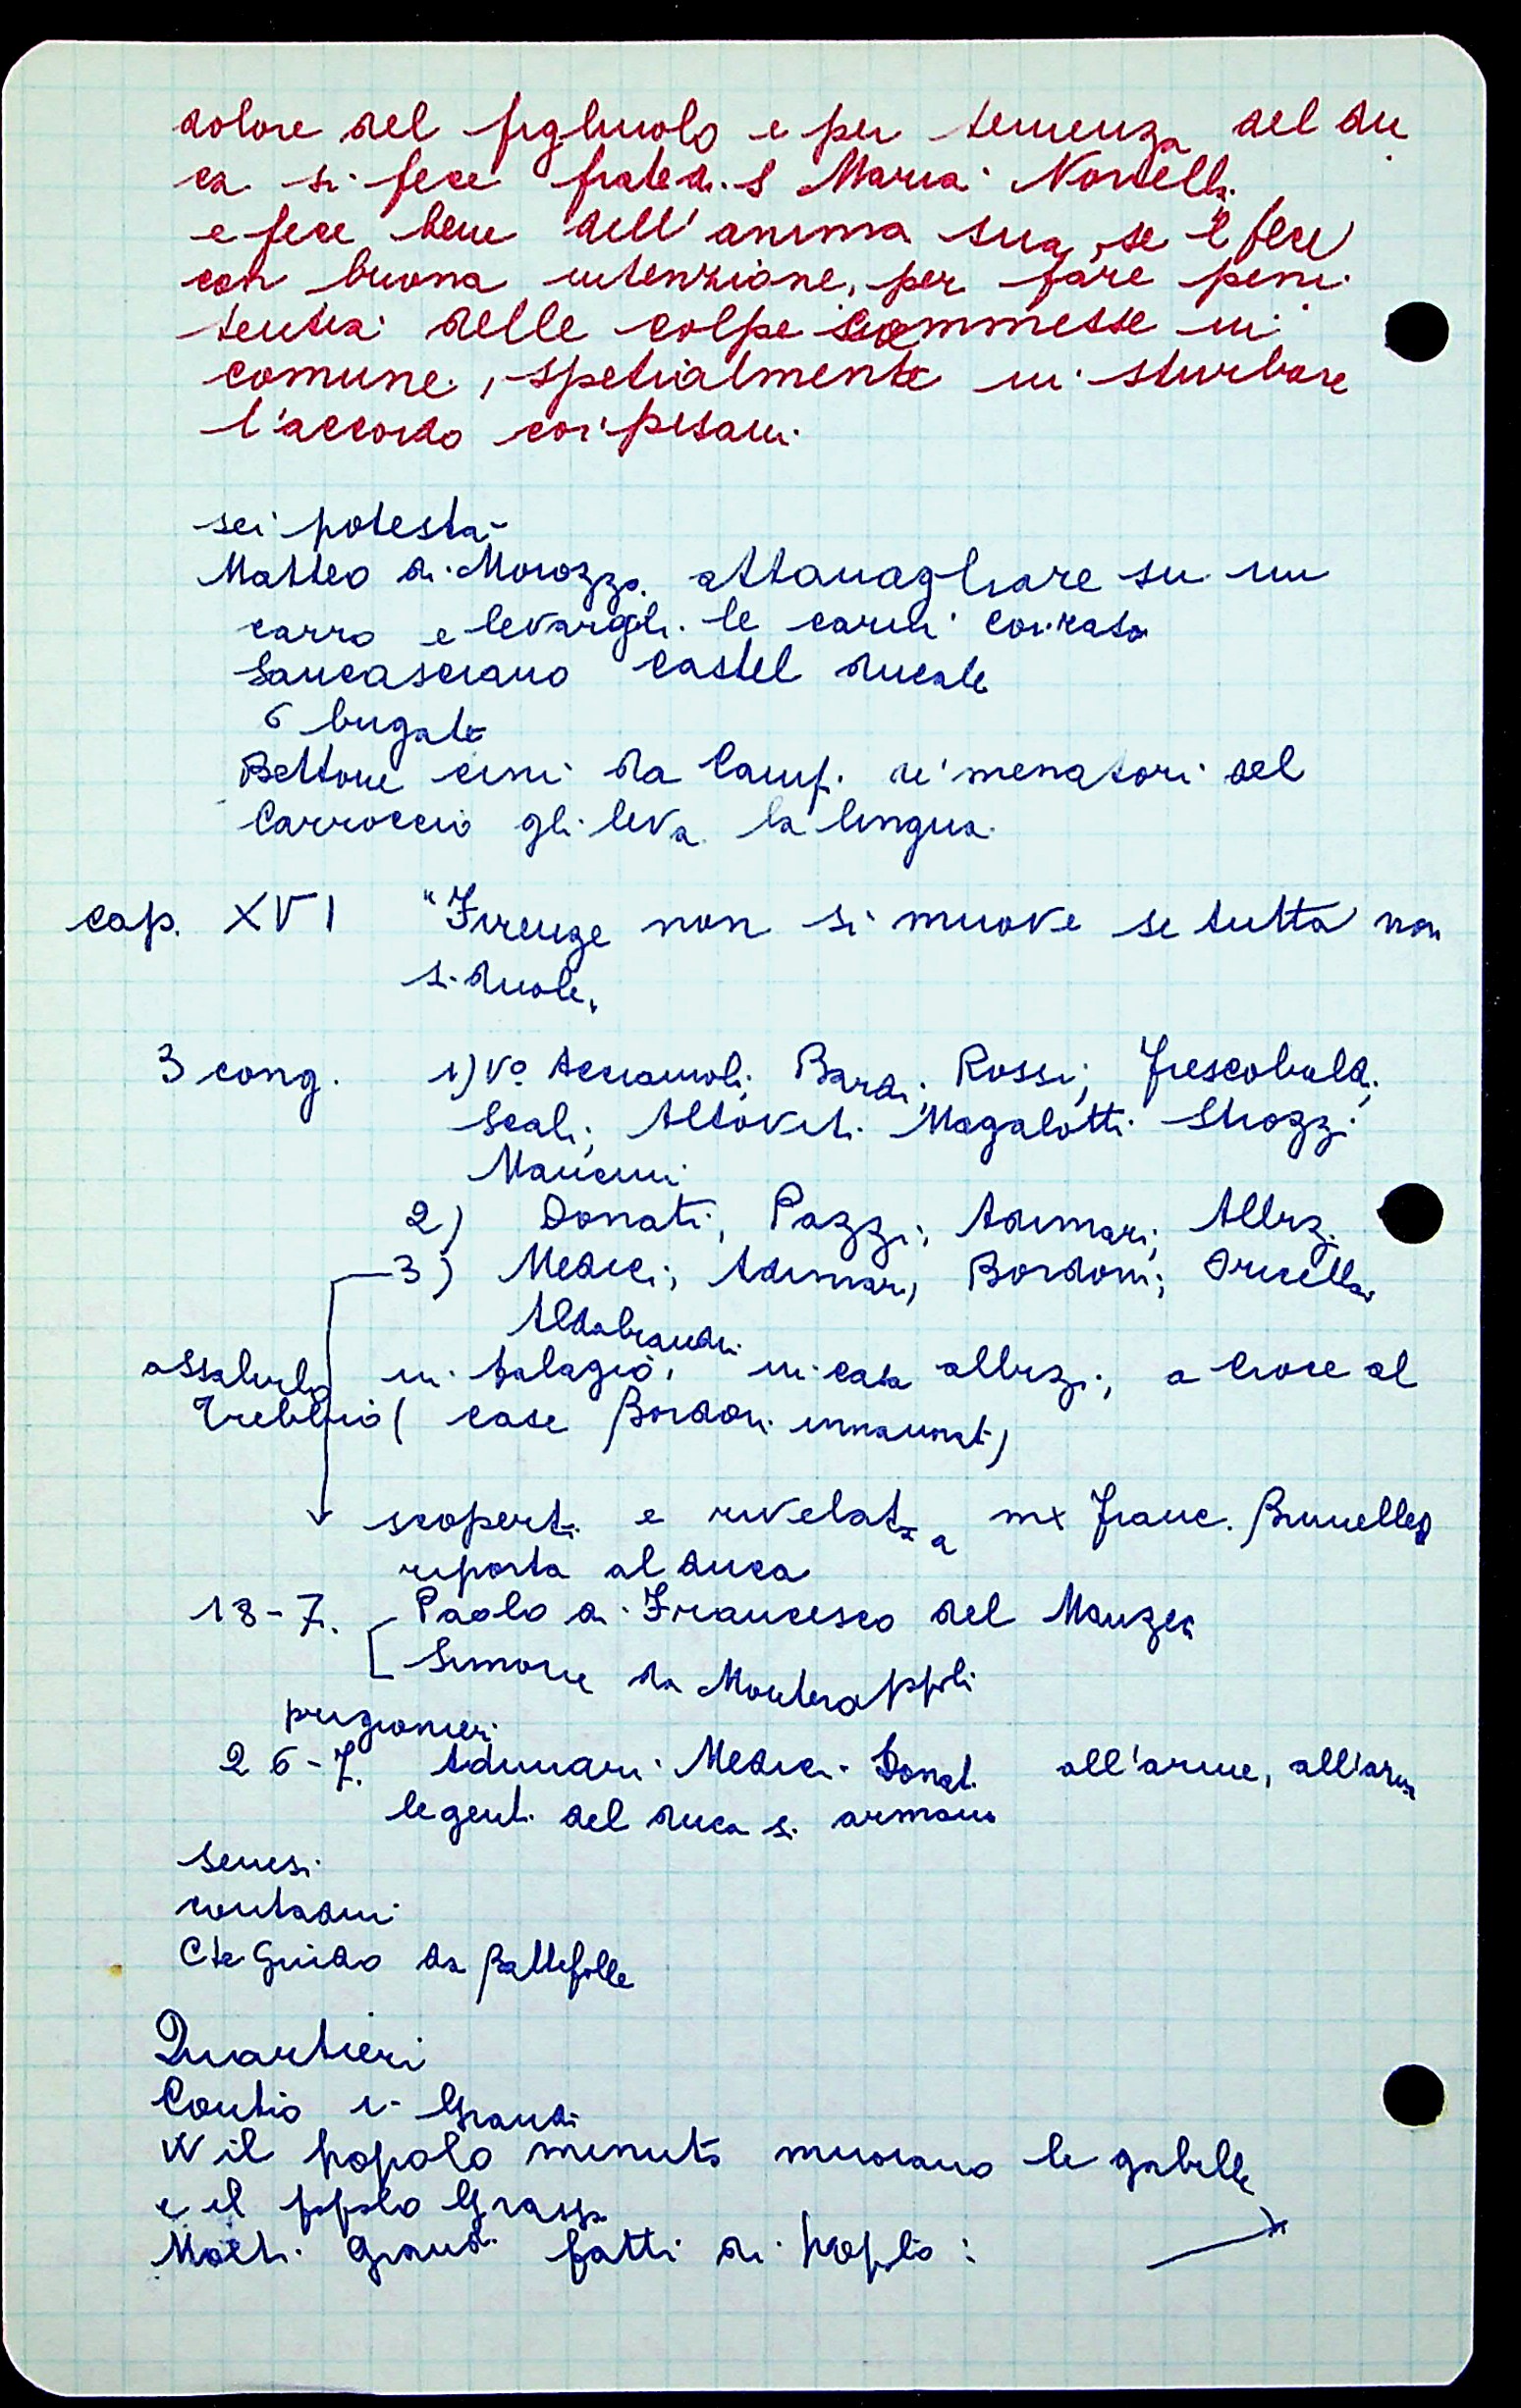 dolore del figliuolo e per temenza del du
ca si fece frate di S Maria Novella
e fece bene dell'anima sua, se 'l fece
con buona intenzione, per fare peni
tentia delle colpe commesse in
comune, spetialmente in sturbare
l'accordo coi pisani
sei potestà
Matteo di Morozzo attanagliare su un
carro e levargli le carni
Sancasciano Castel ducale
6 brigate
Bettone Cini da Camp. de' menatori del
Carroccio gli leva la lingua
cap. XVI "Firenze non si muove se tutta non
si duole"
3 cong. 1) Vo Acciaiuoli, Bardi, Rossi, Frescobaldi,
Scali, Altoviti Magalotti Strozzi
Mancini
2) Donati, Pazzi, Adimari, Albiz.
3) Medici, Adimari, Bordoni, Oricellai
Aldobrandi
assalirlo in palagio, in casa albizi, a Croce al
Trebbio (case Bordoni
scoperti e rivelata a mx Franc. Brunelles
riporta al duca
18-7. Paolo di Francesco del Manzeca
Simone da Monterappoli
prigionieri
26-7. Adimari Medici Donati all'arme, all'arme
le genti del duca si armano
Senesi
contadini
Cte Guido da Battifolle
Quartieri
Contro i Grandi
W il popolo minuto muoiano le gabelle
e il popolo Grasso
Molti Grandi fatti di popolo: